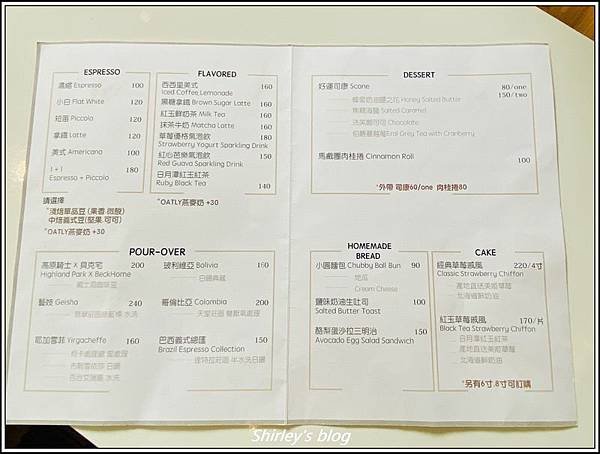 ESPRESSO
濃縮 Espresso 100
小白 Flat White 120
短笛 Piccolo 120
拿鐵 Latte 120
美式 Americano 100
1+1 180
Espresso + Piccolo
請選擇
*淺焙單品豆 (果香.微酸)
中焙義式豆(堅果.可可)
*OATLY燕麥奶 +30
FLAVORED
西西里美式 160
Iced Coffee,Lemonade
黑糖拿鐵 Brown Sugar Latte 160
紅玉鮮奶茶 Milk Tea 160
抹茶牛奶 Matcha Latte 160
草莓優格氣泡飲 180
Strawberry Yogurt Sparkling Drink
紅心芭樂氣泡飲 150
Red Guava Sparkling Drink
日月潭紅玉紅茶
Ruby Black Tea 140
*OATLY燕麥奶 +30
DESSERT
好運司康 Scone 80/one
150/two
Honey Salted Butter
Salted Caramel
Chocolate
Earl Grey Tea with Cranberry
馬戲團肉桂捲 Cinnamon Roll 100
*外帶 司康60/one 肉桂捲80
POUR-OVER
高原騎士 X 貝克宅 200
Highland Park X BeckHome
藝妓 Geisha 240
水洗
耶加雪菲 Yirgacheffe 160
日曬
水洗
玻利維亞 Bolivia 160
哥倫比亞 Colombia 200
巴西義式總匯 150
Brazil Espresso Collection
半水洗日曬
HOMEMADE
BREAD
小圓麵包 Chubby Ball Bun 90
地瓜
Cream Cheese
鹽味奶油生吐司 100
Salted Butter Toast
酪梨蛋沙拉三明治 150
Avocado Egg Salad Sandwich
CAKE
經典草莓戚風 220/4寸
Classic Strawberry Chiffon
產地直送美姬草莓
北海道鮮奶油
紅玉草莓戚風 170/片
Black Tea Strawberry Chiffon
日月潭紅玉
產地直送美姬草莓
北海道鮮奶油
*另有6寸.8寸可訂購
Shirley's blog